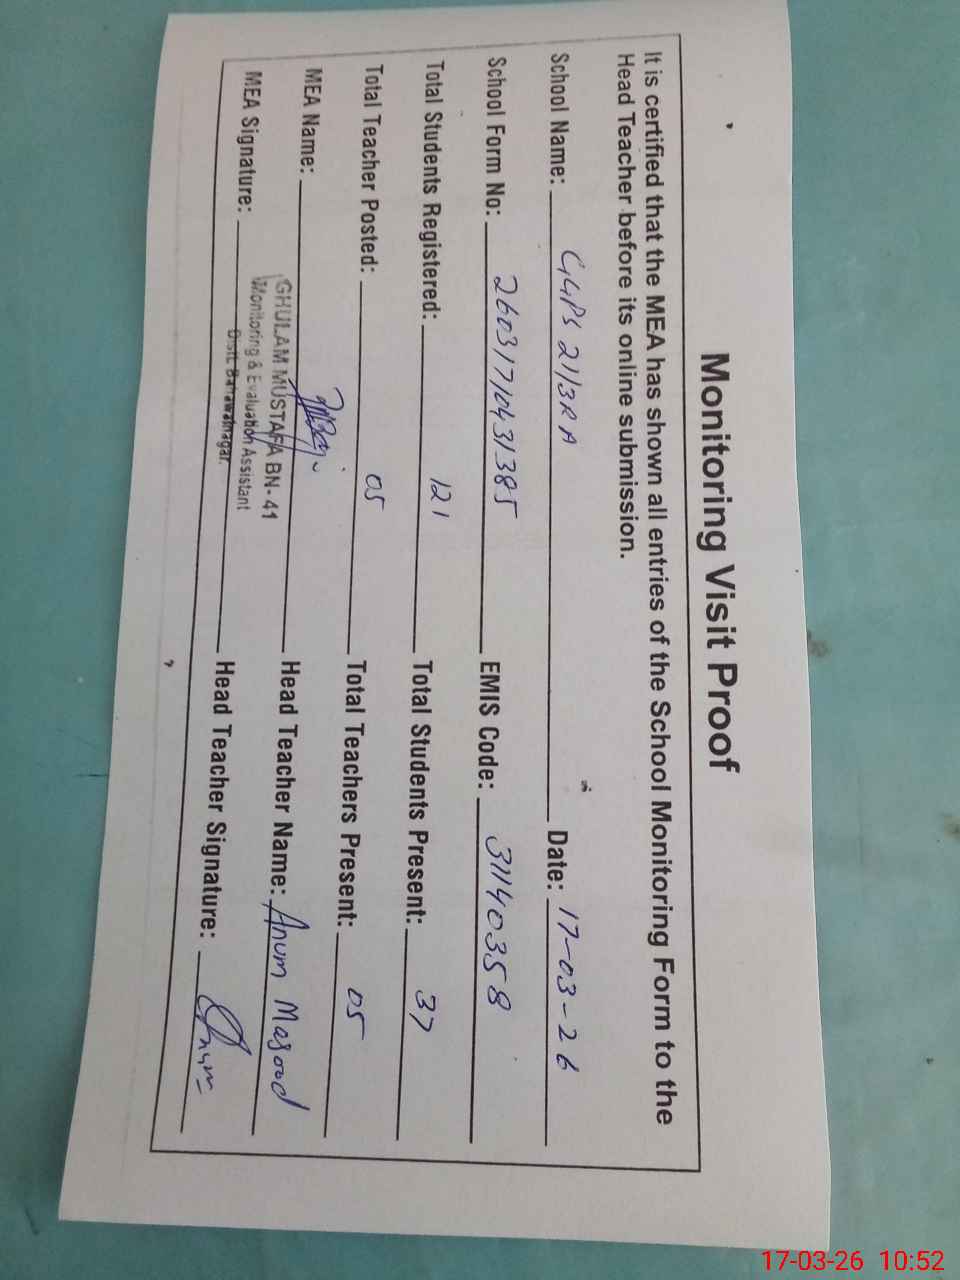 Monitoring Visit Proof
It is certified that the MEA has shown all entries of the School Monitoring Form to the
Head Teacher before its online submission.
School Name: GGPS 21/3RA Date: 17-03-26
School Form No: 26031710431385 EMIS Code: 31140358
Total Students Registered: 121 Total Students Present: 37
Total Teacher Posted: 05 Total Teachers Present: 05
MEA Name: Head Teacher Name: Anum Masood
GHULAM MUSTAFA BN-41
Monitoring & Evaluation Assistant
Distt. Bahawalnagar.
MEA Signature: Head Teacher Signature: Anum
17-03-26 10:52